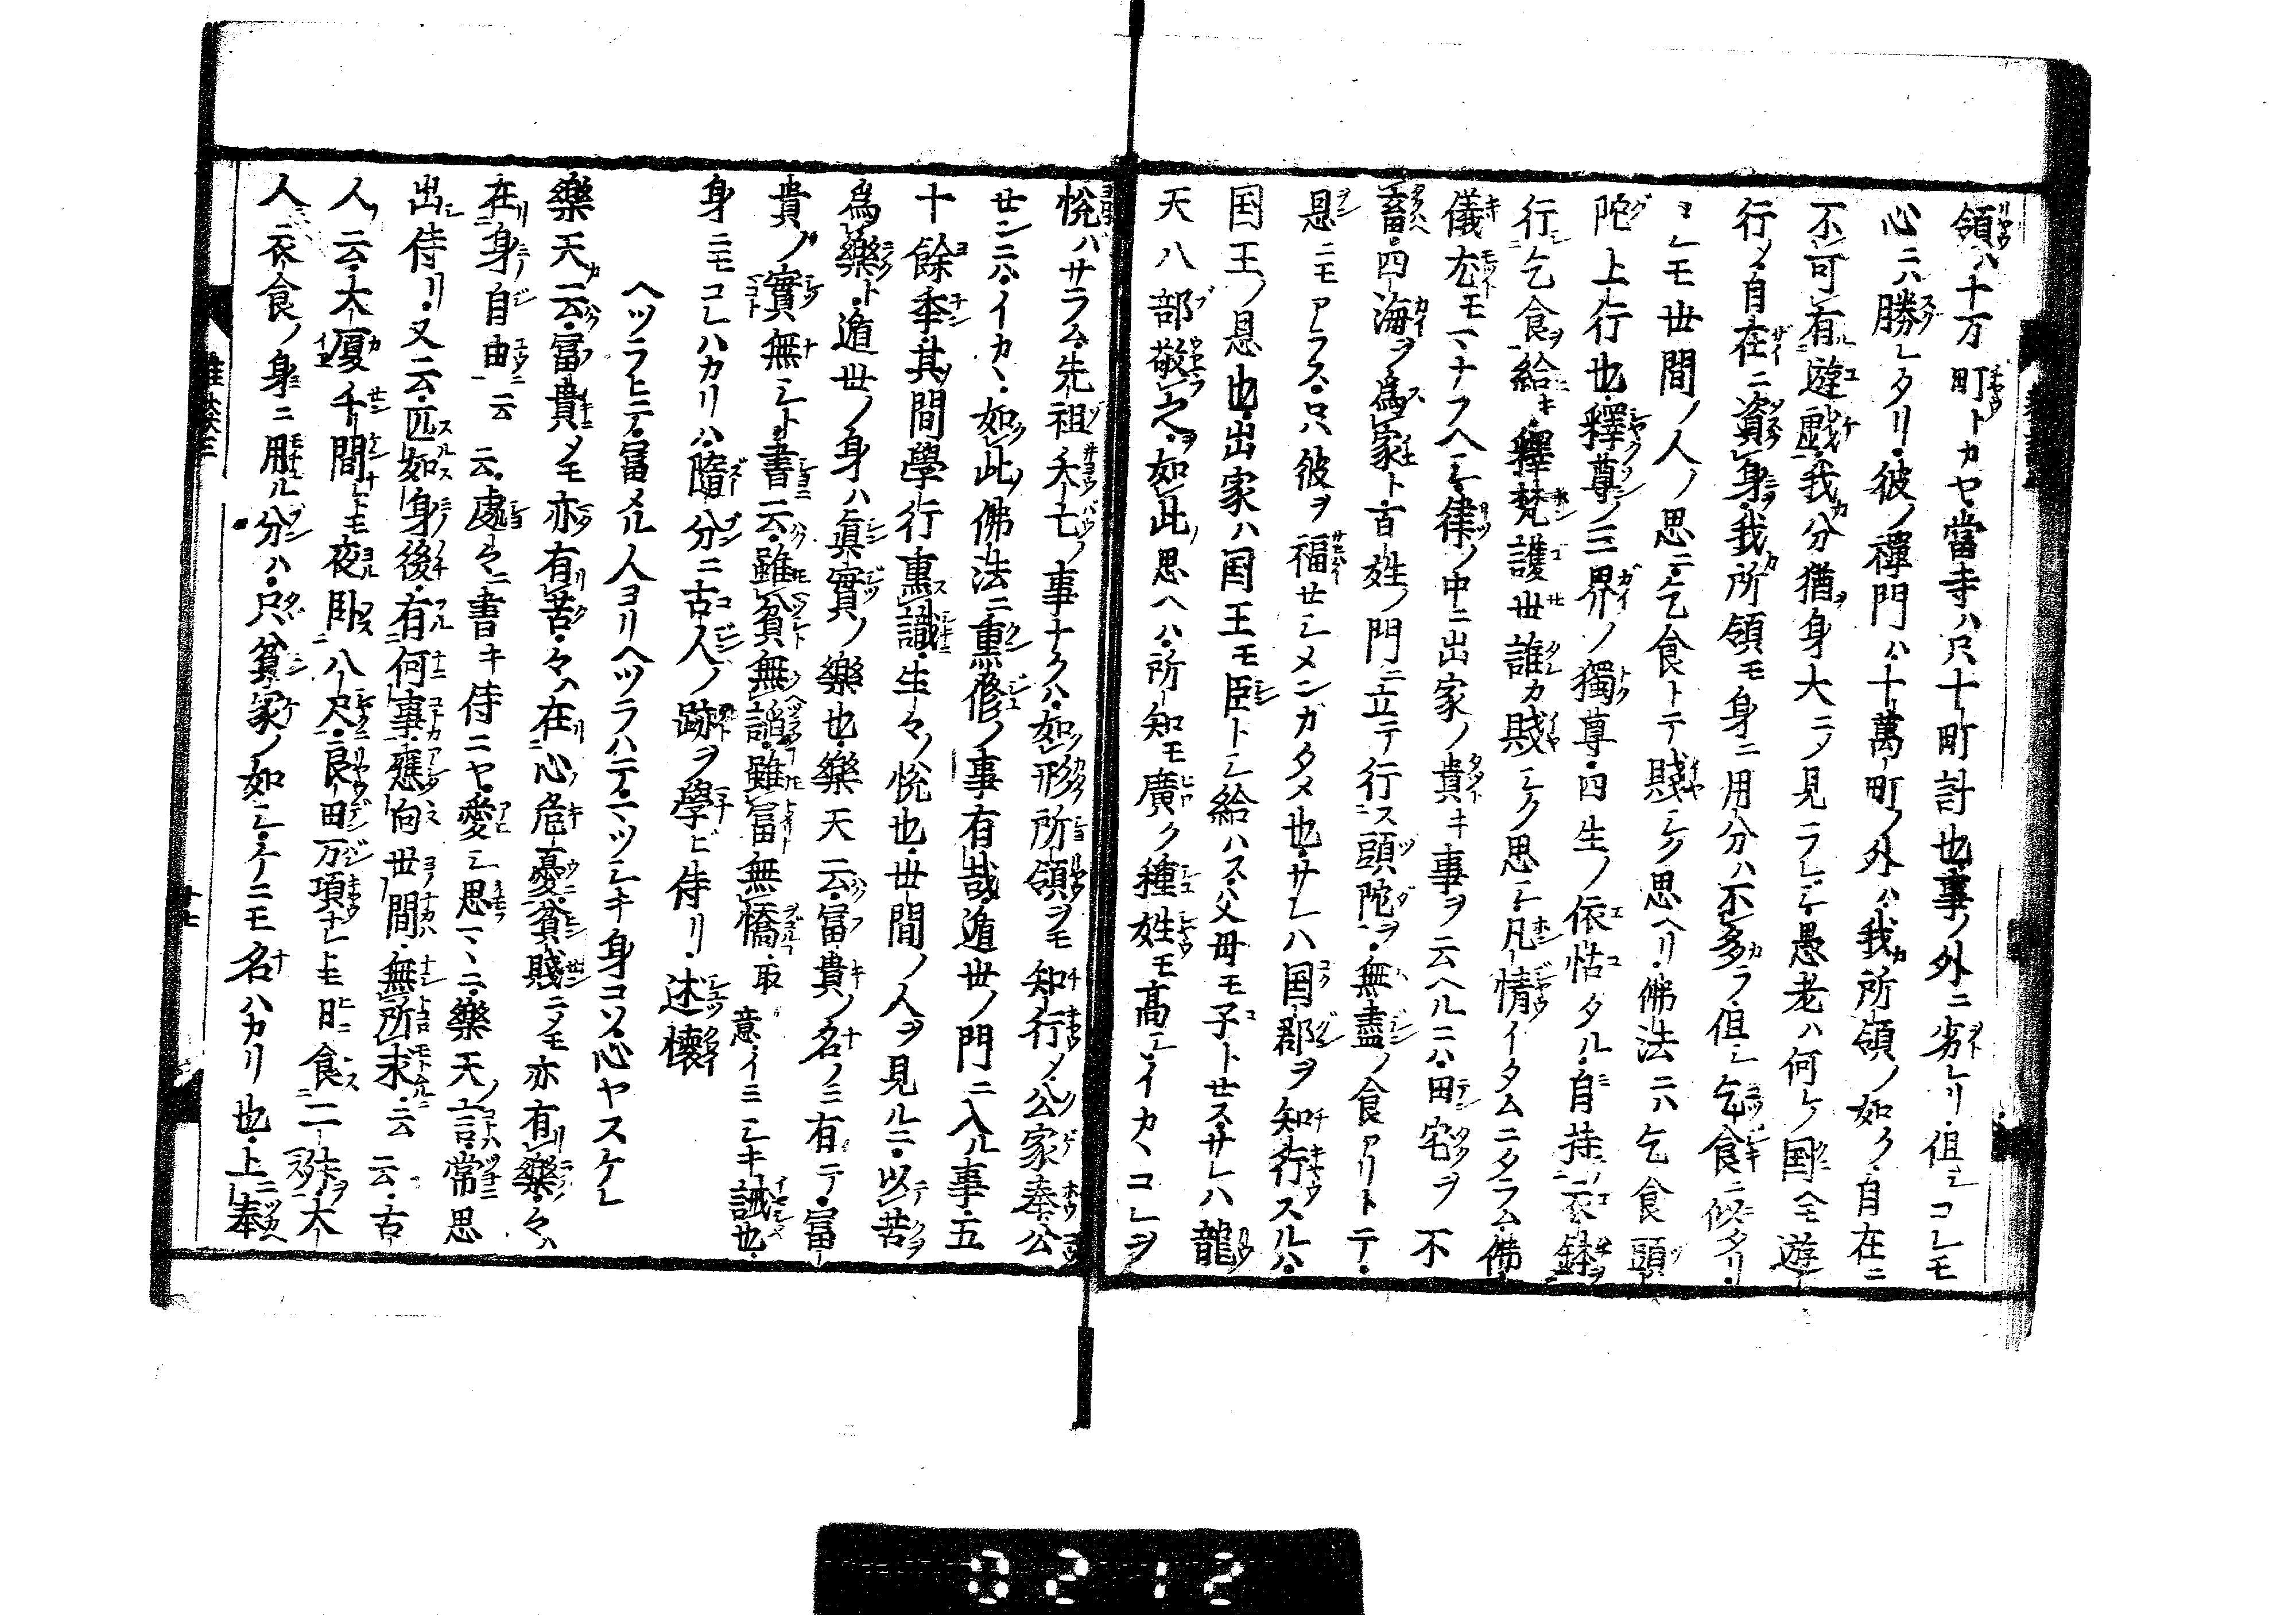 領ハ十万町トカヤ當寺ハ只十町計也事ノ外ニ劣レリ但シコレモ
心ニハ勝レタリ彼ノ禪門ハ十萬町ノ外ハ我所領ノ如ク自在ニ
不可有遊戯我分猶身大ニメ見ヲレデ愚老ハ何レノ国ヘモ遊
行メ自在ニ資身我所領モ身ニ用分ハ不多ラ但シ乞食ニ似タリ
ヨシモ世間ノ人ノ思ニ乞食トテ賤シク思ヘリ佛法ニハ乞食頭
陀上行也釋尊ノ三界ノ獨尊四生ノ依怙タル自持衣鉢
行乞食給キ釋梵護世誰カ賤シク思シ凡情イタムニタラム佛
儀尤モマナフヘシ律ノ中ニ出家ノ貴キ事ヲ云ヘルニハ田宅ヲ不
畜四海ヲ為家ト百姓ノ門ニ立テ行ス頭陀ヲ無盡ノ食アリトテ
恩ニモアラス只彼ヲ福セシメンガタメ也サレハ国郡ヲ知行スルハ
国王ノ恩也出家ハ国王モ臣トシ給ハス父母モ子トセスサレハ龍
天八部敬之如此思ヘハ所知モ廣ク種姓モ高シイカヽコレヲ
悦バサラム先祖夭亡ノ事ナクハ如形所領ヲモ知行メ公家奉公
センニハイカヽ如此佛法ニ熏修ノ事有哉遁世ノ門ニ入ル事五
十餘季其間學行熏識生々ノ悦也世間ノ人ヲ見ルニ以苦
為樂ト遁世ノ身ハ眞實ノ樂也樂天云富貴ノ名ノミ有テ富
貴ノ實無シト書云雖貧無諂雖富無憍取意イミシキ誡也
身ニモコレハカリハ隨分ニ古人ノ跡ヲ學ビ侍リ述懷
ヘツラヒテ富メル人ヨリヘツラハテマツシキ身コソ心ヤスケレ
樂天云富貴メモ亦有苦々ハ在心危憂貧賤ニメモ亦有樂々ハ
在身自由云云處々ニ書キ侍ニヤ愛シ思マヽニ樂天ノ言常思
出侍リ又云匹如身後有何事應向世間無所求云云古
人云大厦千間ナレトモ夜臥八尺良田万項ナレトモ日食二升大
人衣食ノ身ニ用ル分ハ只貧家ノ如シケニモ名ハカリ也上奉